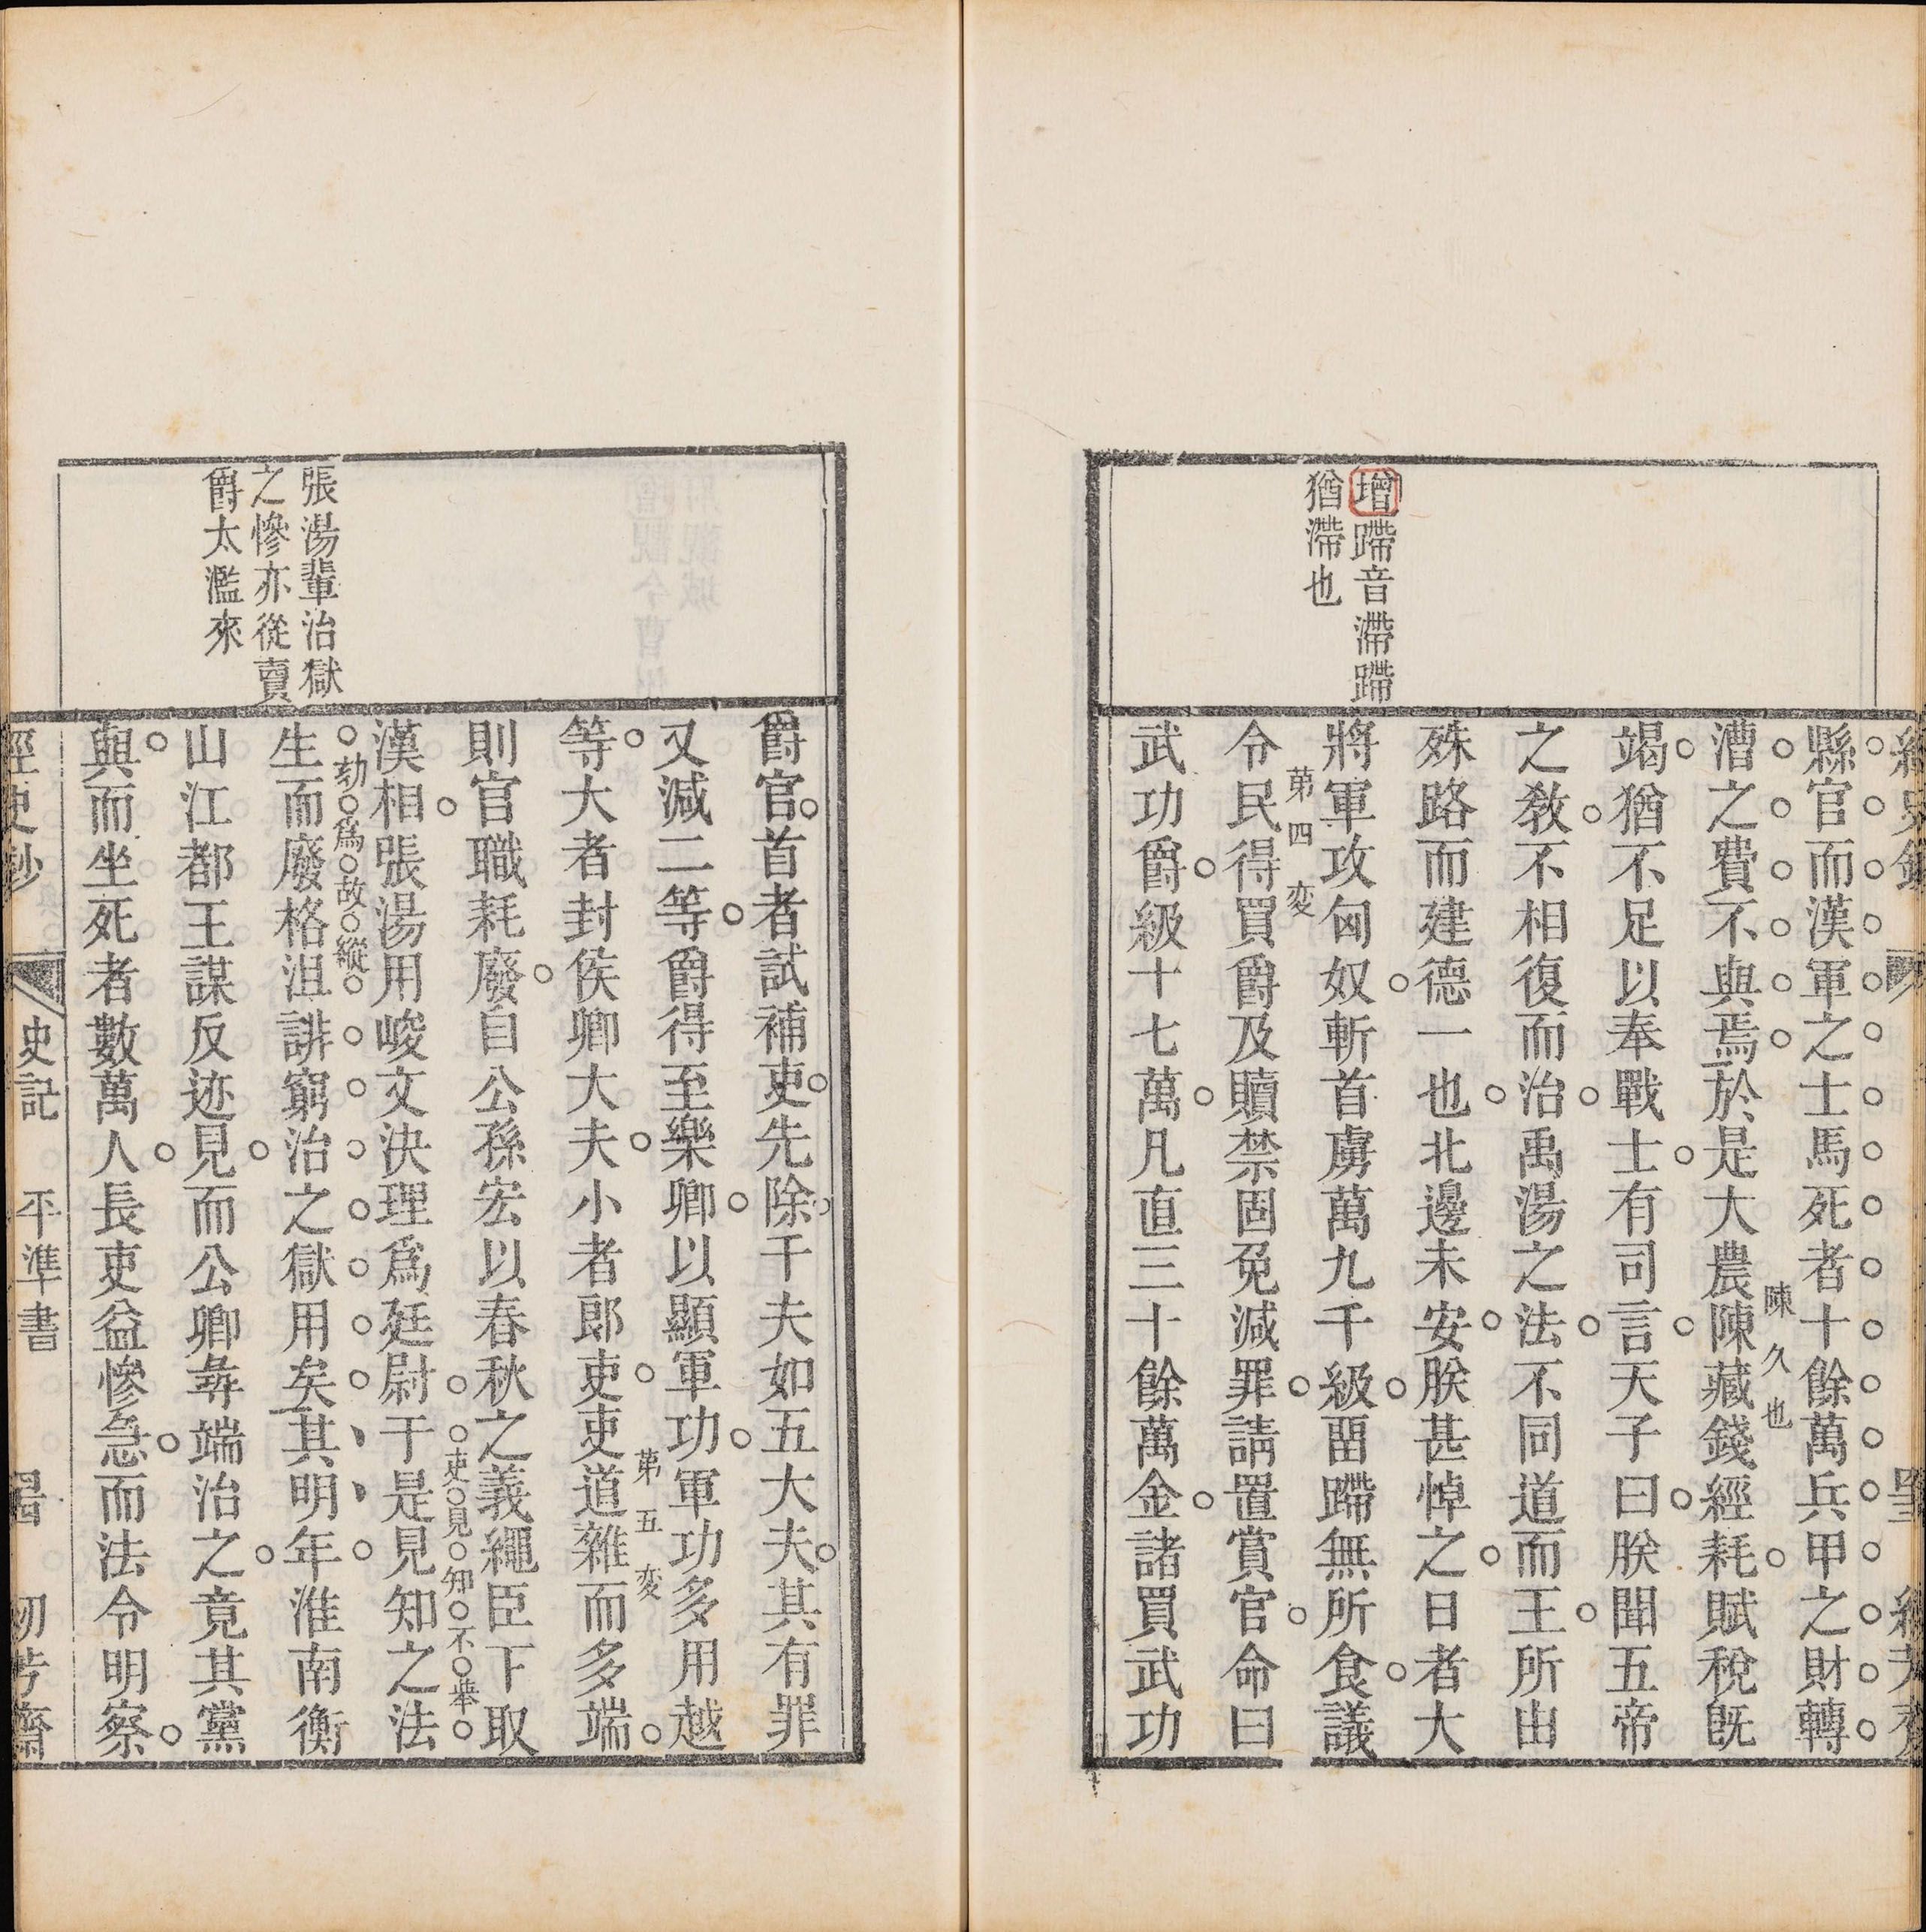 增蹛音滯蹛
猶滯也
縣官而漢軍之士馬死者十餘萬兵甲之財轉
漕之費不與焉於是大農陳藏錢經耗賦稅旣
陳久也
竭猶不足以奉戰士有司言天子曰朕聞五帝
之敎不相復而治禹湯之法不同道而王所由
殊路而建德一也北邊未安朕甚悼之日者大
將軍攻匈奴斬首虜萬九千級畱蹛無所食議
第四变
令民得買爵及贖禁固免減罪請置賞官命曰
武功爵級十七萬凡直三十餘萬金諸買武功
張湯輩治獄
之慘亦從賣
爵太濫來
爵官首者試補吏先除千夫如五大夫其有罪
又減二等爵得至樂卿以顯軍功軍功多用越
第五变
等大者封侯卿大夫小者郎吏吏道雜而多端
則官職耗廢自公孫宏以春秋之義繩臣下取
吏見知不舉
漢相張湯用峻文決理爲廷尉于是見知之法
劾爲故縱
生而廢格沮誹窮治之獄用矣其明年淮南衡
山江都王謀反迹見而公卿尋端治之竟其黨
與而坐死者數萬人長吏益慘急而法令明察
史記 平準書